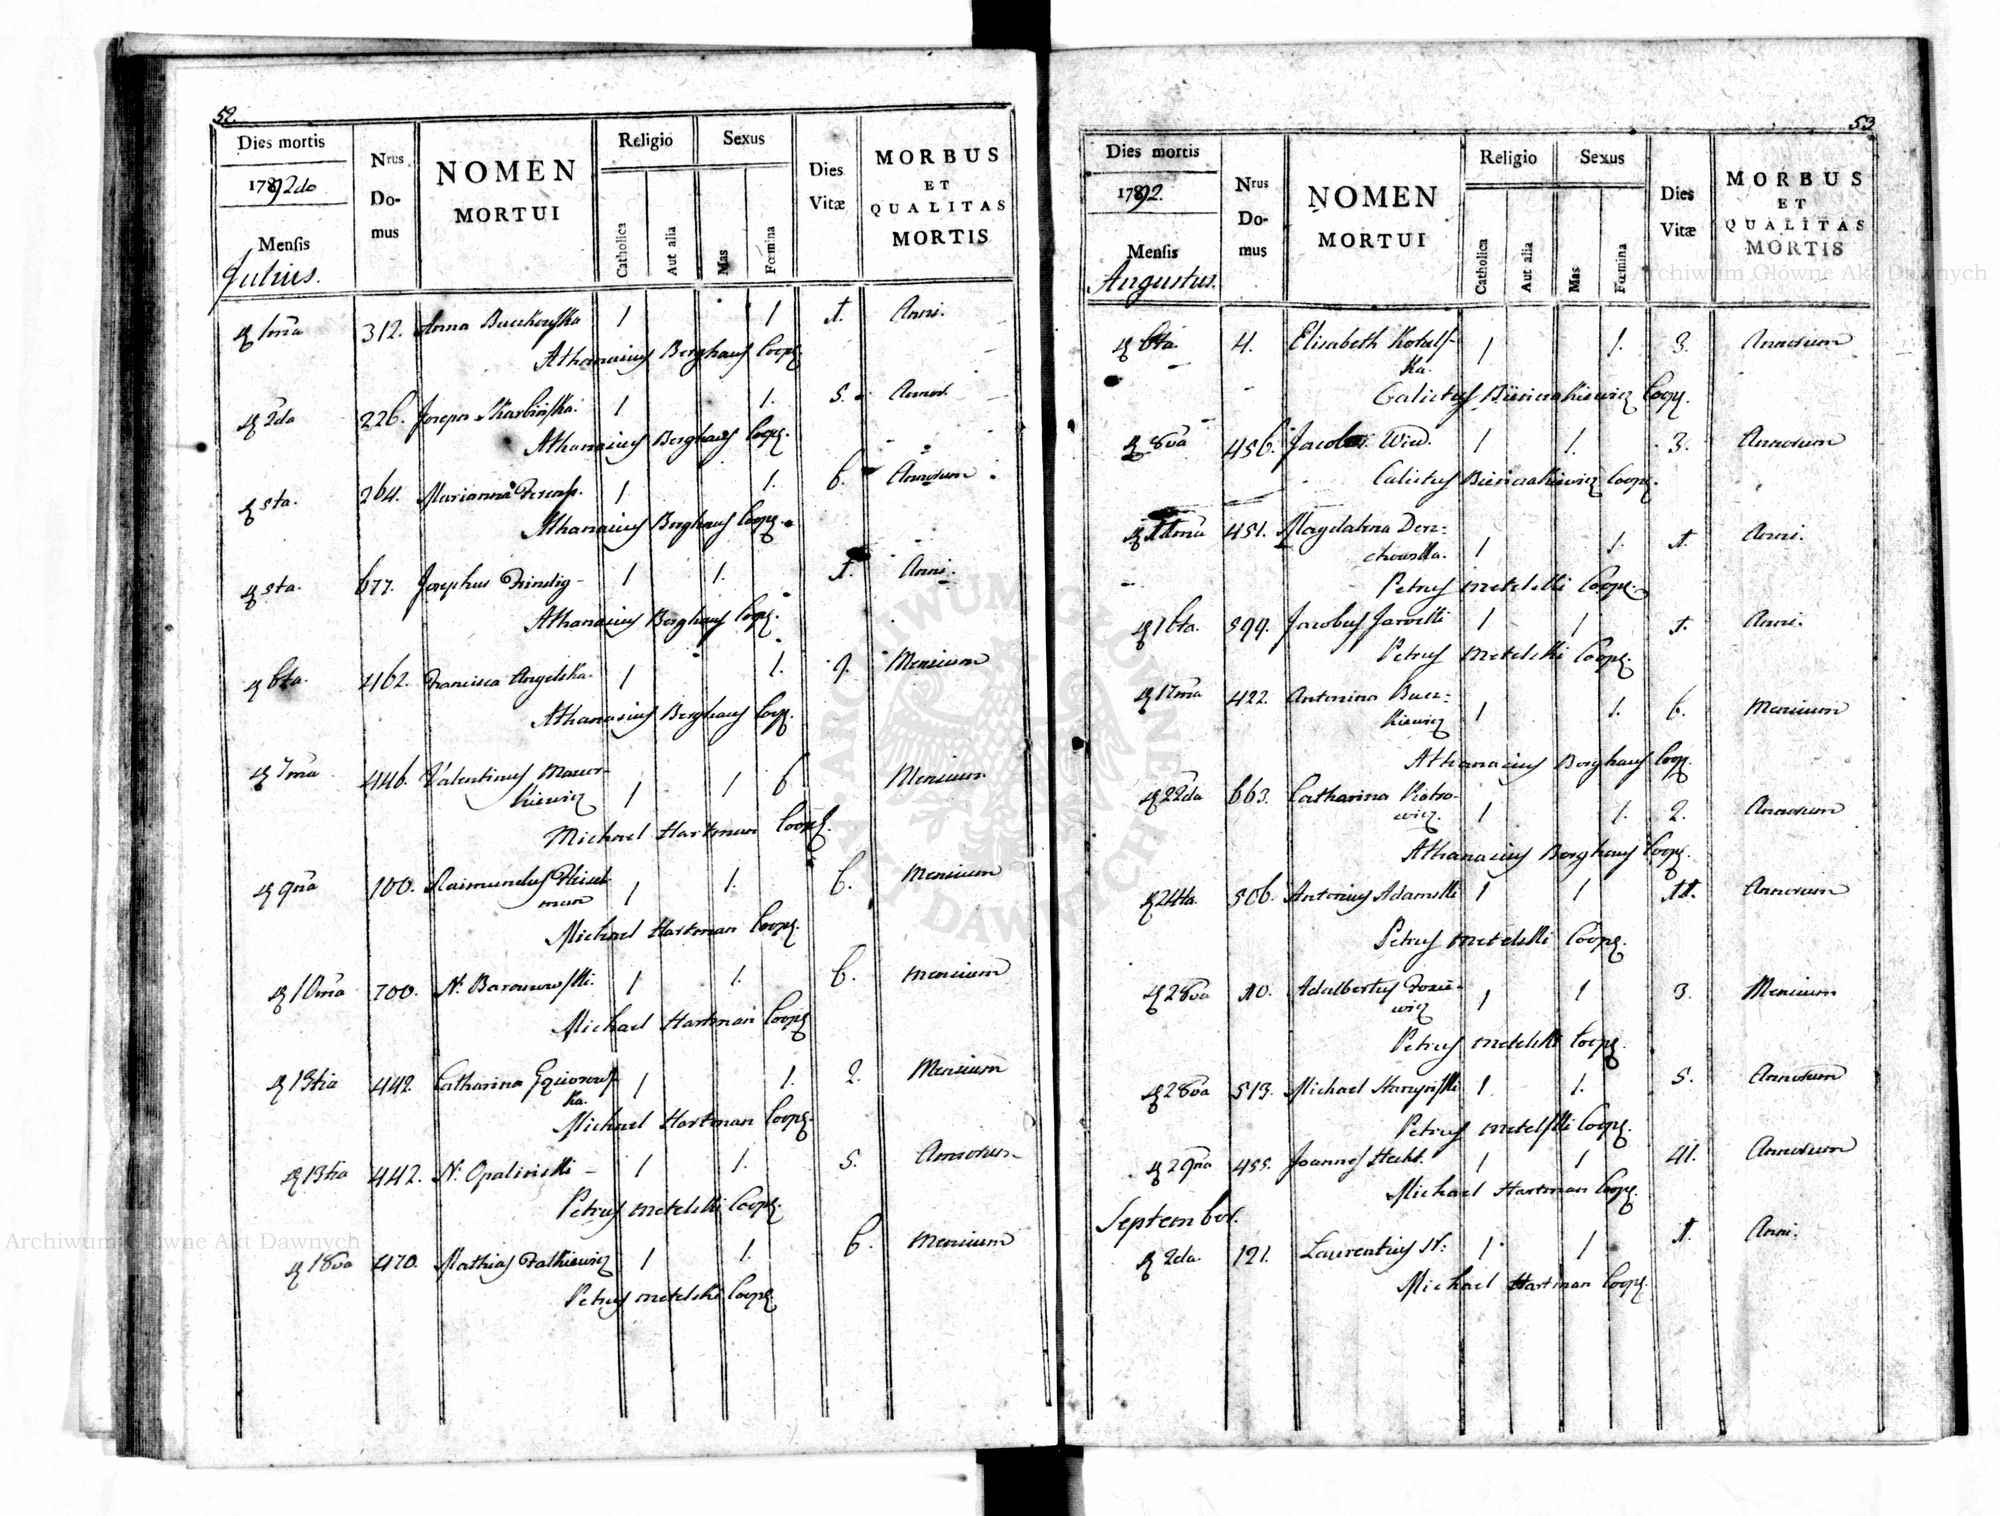 52.
Dies mortis
1792do
Mensis
Julius.
Nrus Do-mus
NOMEN
MORTUI
Religio
Catholica
Aut alia
Sexus
Mas
Fœmina
Dies
Vitæ
MORBUS
ET
QUALITAS
MORTIS
1ma 312. Anna 1 1 1. Anni.
Athanasius Berghauſ Coop.
2da 226. 1 1. 5. Annor.
Athanasius Berghauſ Coop.
5ta. 264. Marianna 1. 1. 6. Annorum
Athanasius Berghauſ Coop.
5ta. 677. Josephus 1 1. 1. Anni.
Athanasius Berghauſ Coop.
6ta. 462. Francisca Angelska. 1 1. 9. Mensium
Athanasius Berghauſ Coop.
7ma 446. Valentinus
kiewicz 1 1 6 Mensium
Michael Hartman Coop.
9na 100. Raimundus
man 1 1. 6. Mensium
Michael Hartman Coop.
10ma 700. N. Baranowſki. 1 1. 6. Mensium
Michael Hartman Coop.
13tia 442. Catharina
ka. 1 1. 2. Mensium
Michael Hartman Coop.
13tia 442. N. Opalinski - 1 1. 5. Annorum
Petrus Metelski Coop.
18va 470. Mathias Falkiewicz 1 1. 6. Mensium
Petrus Metelski Coop.
53
Dies mortis
1792.
Mensis
Augustus.
Nrus Do-mus
NOMEN
MORTUI
Religio
Catholica
Aut alia
Sexus
Mas
Fœmina
Dies
Vitæ
MORBUS
ET
QUALITAS
MORTIS
6ta. 4. Elisabeth Kotalſ-
ka. 1 1. 3. Annorum
Calixtus Coop.
8va 456. 1 1. 3. Annorum
Calixtus Coop.
451. Magdalena Den-
chowska. 1 1. 1. Anni.
Petrus Metelski Coop.
16ta. 599. Jacobus Jarocki 1 1 1. Anni.
Petrus Metelski Coop.
17ma 422. Antonina
kiewicz 1 1. 6. Mensium
Athanasius Berghauſ Coop.
22da 663. Catharina Piotro-
wicz. 1 1. 2. Annorum
Athanasius Berghauſ Coop.
24ta. 506. Antonius Adamski 1 1 11. Annorum
Petrus Metelski Coop.
28va 10. Adalbertus
wicz 1 1 3. Mensium
Petrus Metelski Coop.
28va 513. Michael 1 1. 5. Annorum
Petrus Metelſki Coop.
29na 455. Joannes Hecht. 1 1 41. Annorum
Michael Hartman Coop.
September.
2da. 121. Laurentius N: 1 1 1. Anni.
Michael Hartman Coop.
Archiwum Główne Akt Dawnych
Archiwum Główne Akt Dawnych
ARCHIWUM GŁÓWNE AKT DAWNYCH